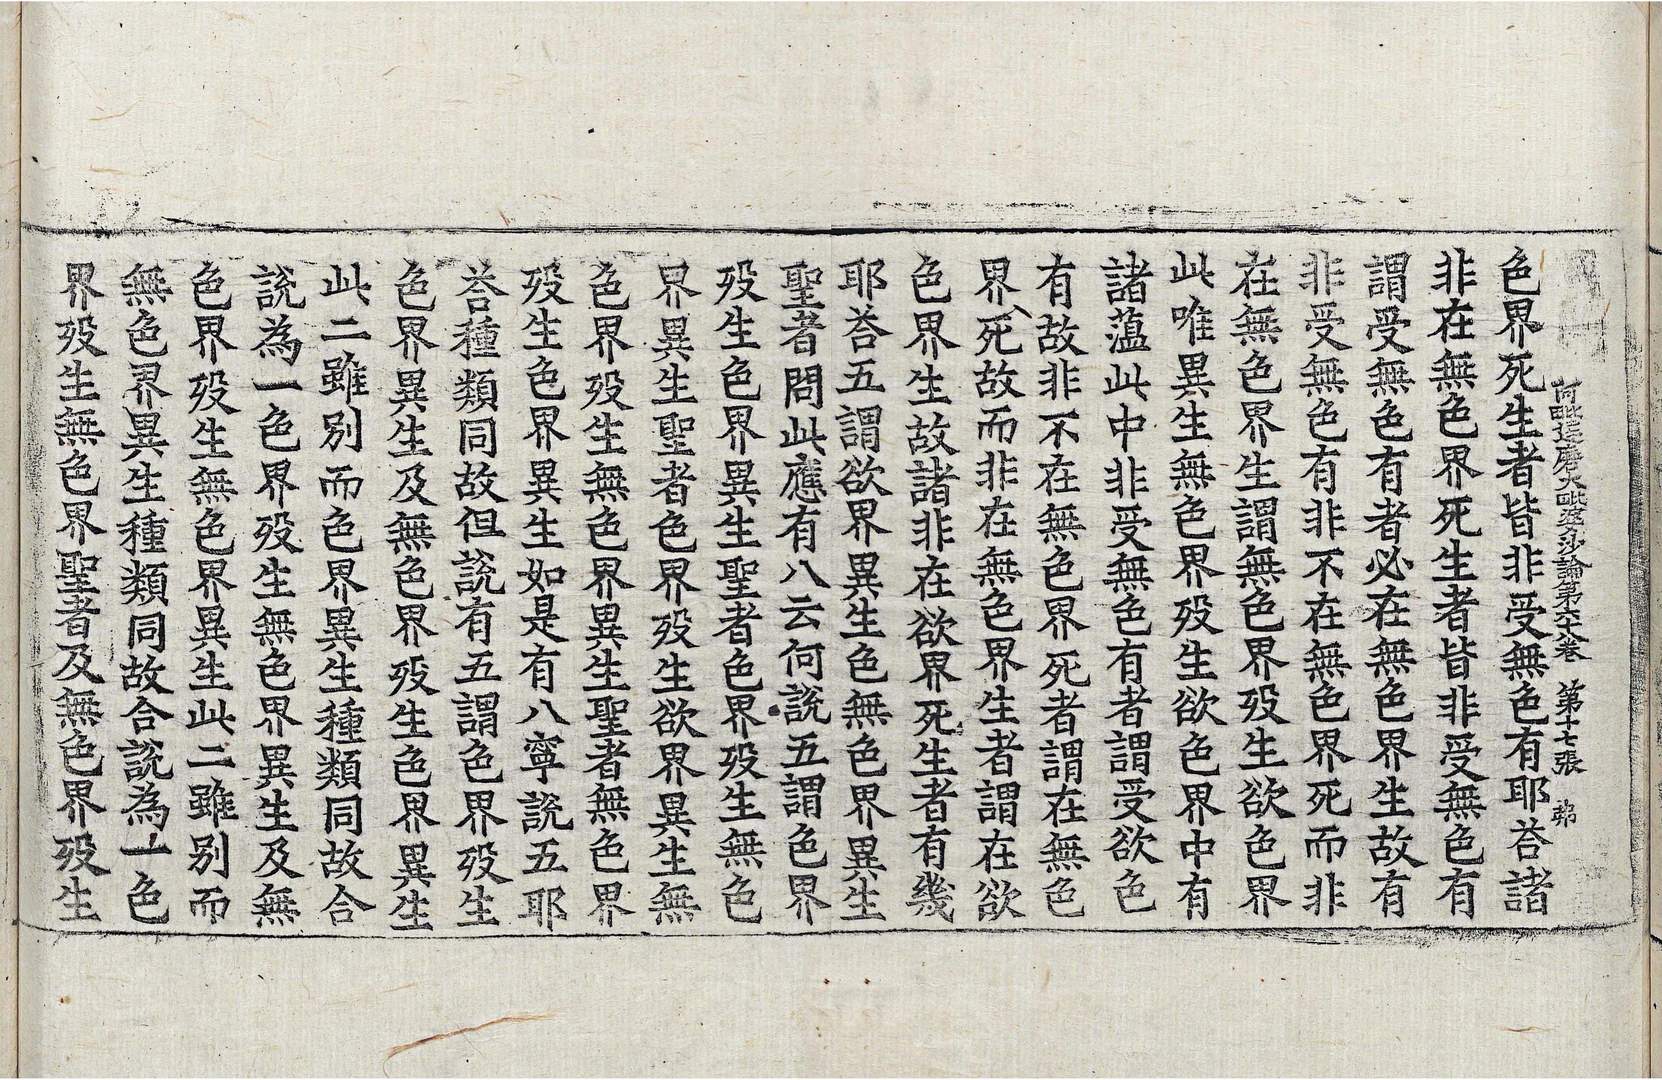 阿毗達磨大毗婆沙論第六十八卷 第十七張 弗
色界死生者皆非受無色有耶荅諸
非在無色界死生者皆非受無色有
謂受無色有者必在無色界生故有
非受無色有非不在無色界死而非
在無色界生謂無色界歿生欲色界
此唯異生無色界歿生欲色界中有
諸薀此中非受無色有者謂受欲色
有故非不在無色界死者謂在無色
界死故而非在無色界生者謂在欲
色界生故諸非在欲界死生者有幾
耶荅五謂欲界異生色無色界異生
聖者問此應有八云何說五謂色界
歿生色界異生聖者色界歿生無色
界異生聖者色界歿生欲界異生無
色界歿生無色界異生聖者無色界
歿生色界異生如是有八寧說五耶
荅種類同故但說有五謂色界歿生
色界異生及無色界歿生色界異生
此二雖別而色界異生種類同故合
說為一色界歿生無色界異生及無
色界歿生無色界異生此二雖別而
無色界異生種類同故合說為一色
界歿生無色界聖者及無色界歿生